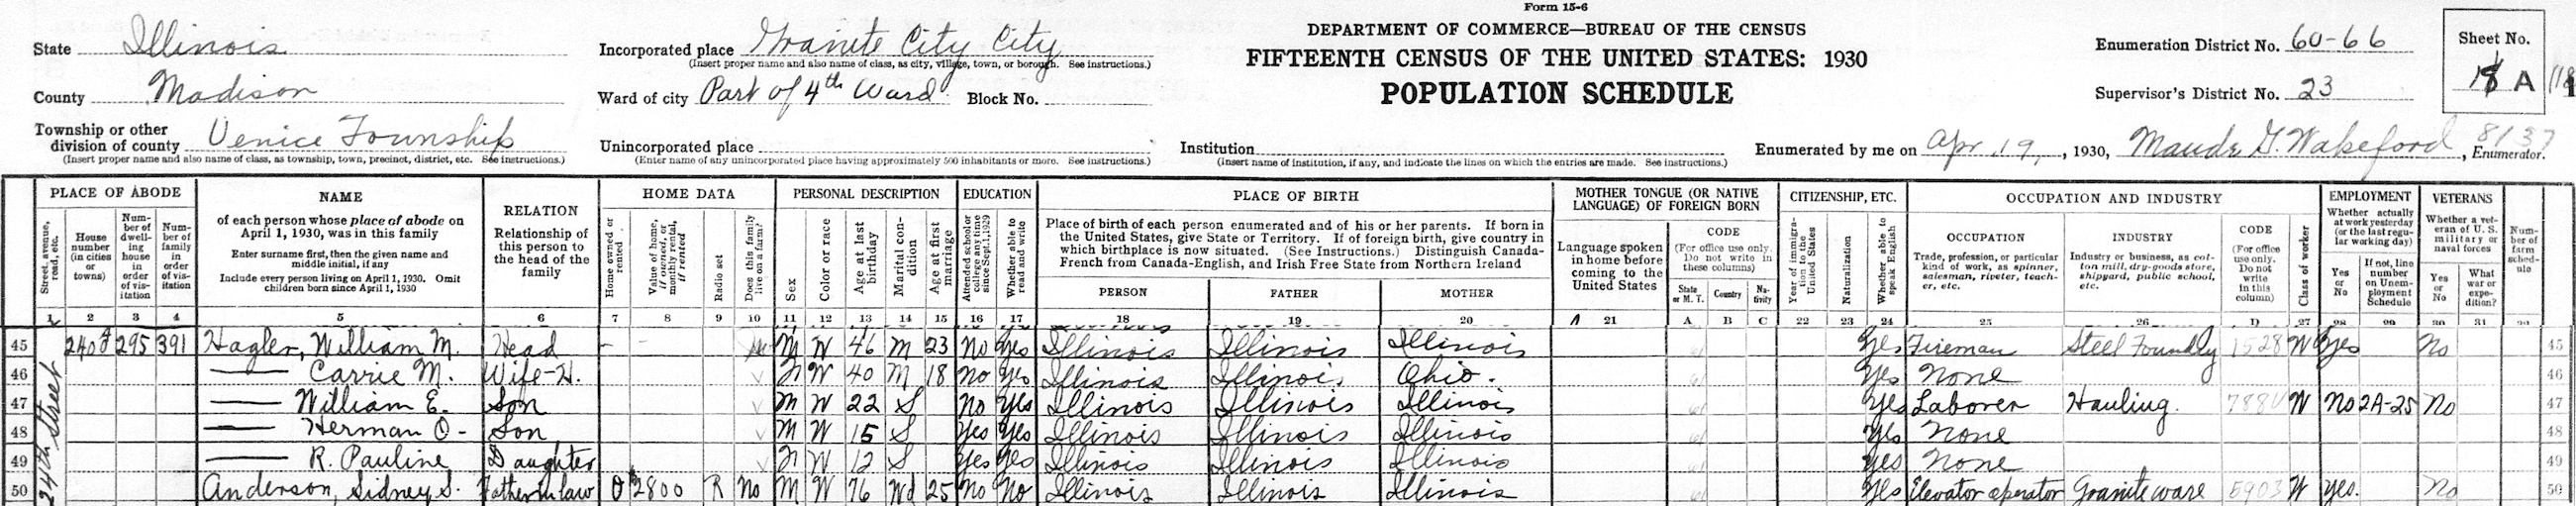 Form 15-6
DEPARTMENT OF COMMERCE—BUREAU OF THE CENSUS
FIFTEENTH CENSUS OF THE UNITED STATES: 1930
POPULATION SCHEDULE
State Illinois
County Madison
Township or other division of county Venice Township
(Insert proper name and also name of class, as township, town, precinct, district, etc. See instructions.)
Incorporated place Granite City City
(Insert proper name and also name of class, as city, village, town, or borough. See instructions.)
Ward of city Part of 4th Ward Block No.
Unincorporated place
(Enter name of any unincorporated place having approximately 500 inhabitants or more. See instructions.)
Institution
(Insert name of institution, if any, and indicate the lines on which the entries are made. See instructions.)
Enumeration District No. 60-66
Supervisor's District No. 23
Sheet No.
A
Enumerated by me on Apr. 19, 1930, Maude G. Wakeford, Enumerator.
8137
PLACE OF ABODE
Street, avenue, road, etc.
House number (in cities or towns)
Number of dwelling house in order of visitation
Number of family in order of visitation
NAME
of each person whose place of abode on April 1, 1930, was in this family
Enter surname first, then the given name and middle initial, if any
Include every person living on April 1, 1930. Omit children born since April 1, 1930
RELATION
Relationship of this person to the head of the family
HOME DATA
Home owned or rented
Value of home, if owned, or monthly rental, if rented
Radio set
Does this family live on a farm?
PERSONAL DESCRIPTION
Sex
Color or race
Age at last birthday
Marital condition
Age at first marriage
EDUCATION
Attended school or college any time since Sept. 1, 1929
Whether able to read and write
PLACE OF BIRTH
Place of birth of each person enumerated and of his or her parents. If born in the United States, give State or Territory. If of foreign birth, give country in which birthplace is now situated. (See Instructions.) Distinguish Canada-French from Canada-English, and Irish Free State from Northern Ireland
PERSON FATHER MOTHER
MOTHER TONGUE (OR NATIVE LANGUAGE) OF FOREIGN BORN
Language spoken in home before coming to the United States
CODE
(For office use only. Do not write in these columns)
State or M. T. Country Nativity
CITIZENSHIP, ETC.
Year of immigration to the United States
Naturalization
Whether able to speak English
OCCUPATION AND INDUSTRY
OCCUPATION
Trade, profession, or particular kind of work, as spinner, salesman, riveter, teacher, etc.
INDUSTRY
Industry or business, as cotton mill, dry-goods store, shipyard, public school, etc.
CODE
(For office use only. Do not write in this column)
Class of worker
EMPLOYMENT
Whether actually at work yesterday (or the last regular working day)
Yes or No
If not, line number on Unemployment Schedule
VETERANS
Whether a veteran of U. S. military or naval forces
Yes or No
What war or expedition?
Number of farm schedule
1 2 3 4 5 6 7 8 9 10 11 12 13 14 15 16 17 18 19 20 21 A B C 22 23 24 25 26 D 27 28 29 30 31 32
24th Street
45 295 391 Hagler, William M. Head M W 46 M 23 No Yes Illinois Illinois Illinois Yes Fireman Steel Foundry 1528 W Yes No 45
46 — Carrie M. Wife-H. F W 40 M 18 No Yes Illinois Illinois Ohio. Yes None 46
47 — William E. Son M W 22 S No Yes Illinois Illinois Illinois Yes Laborer Hauling. W No 2A-25 No 47
48 — Herman O- Son M W 15 S Yes Yes Illinois Illinois Illinois Yes None 48
49 — R. Pauline Daughter F W 12 S Yes Yes Illinois Illinois Illinois Yes None 49
50 Anderson, Sidney S. Father in law O 2800 R No M W 76 Wd 25 No No Illinois Illinois Illinois Yes Elevator operator Graniteware 5903 W Yes. No 50